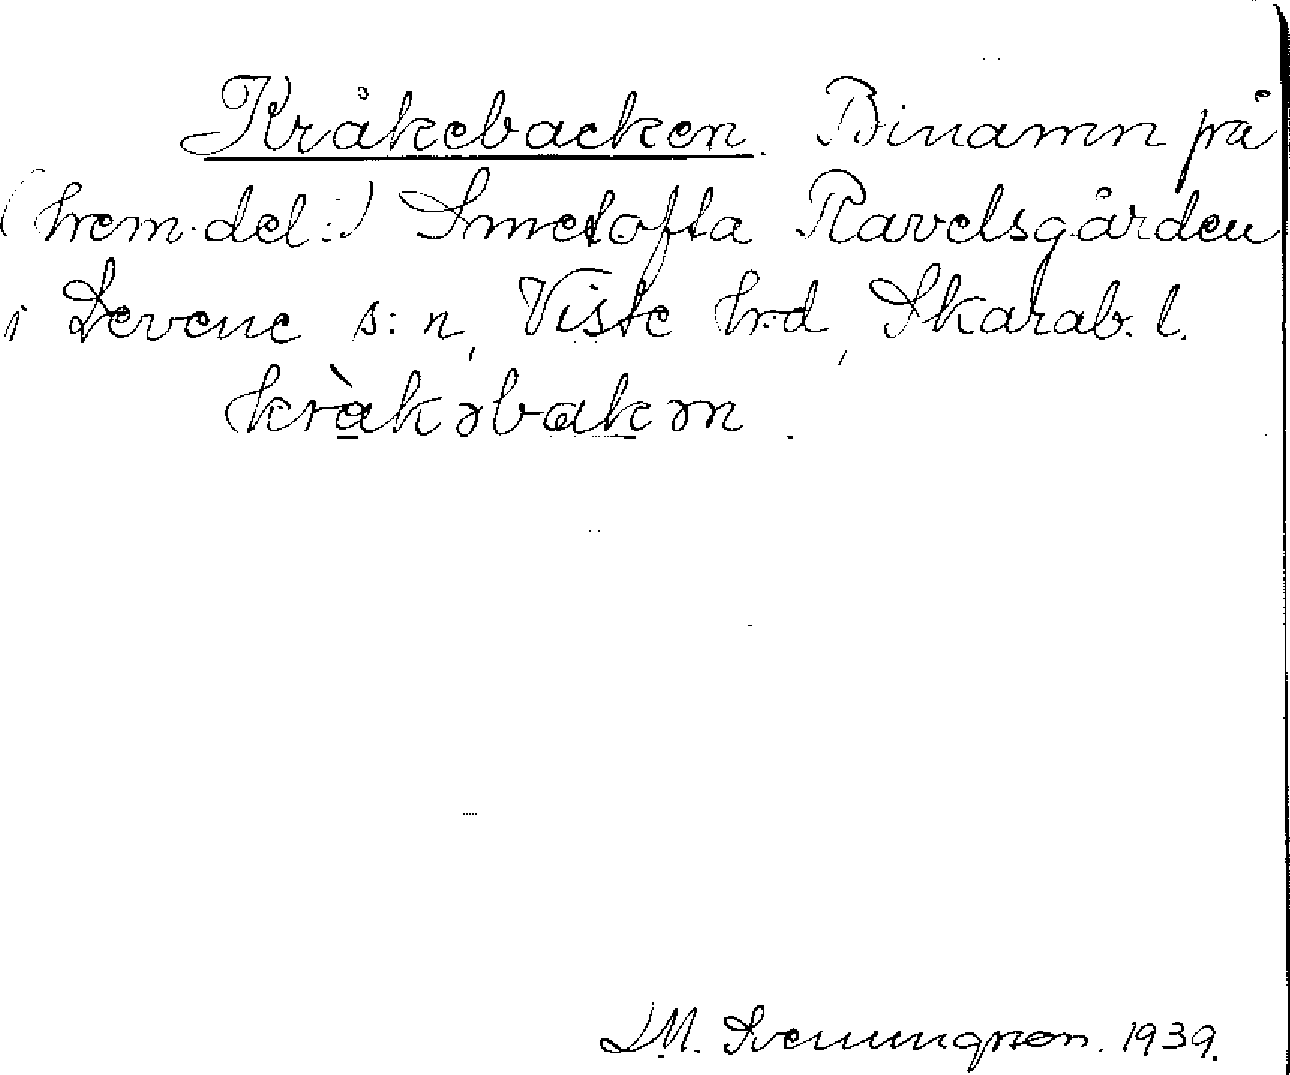 Kråkebacken. Binamn på
(hem.del:) Smetofta Ravelsgården
i Levene s:n, Viste h:d, Skarab. l.
kràkəbakən.
D.M. Svenungsson. 1939.